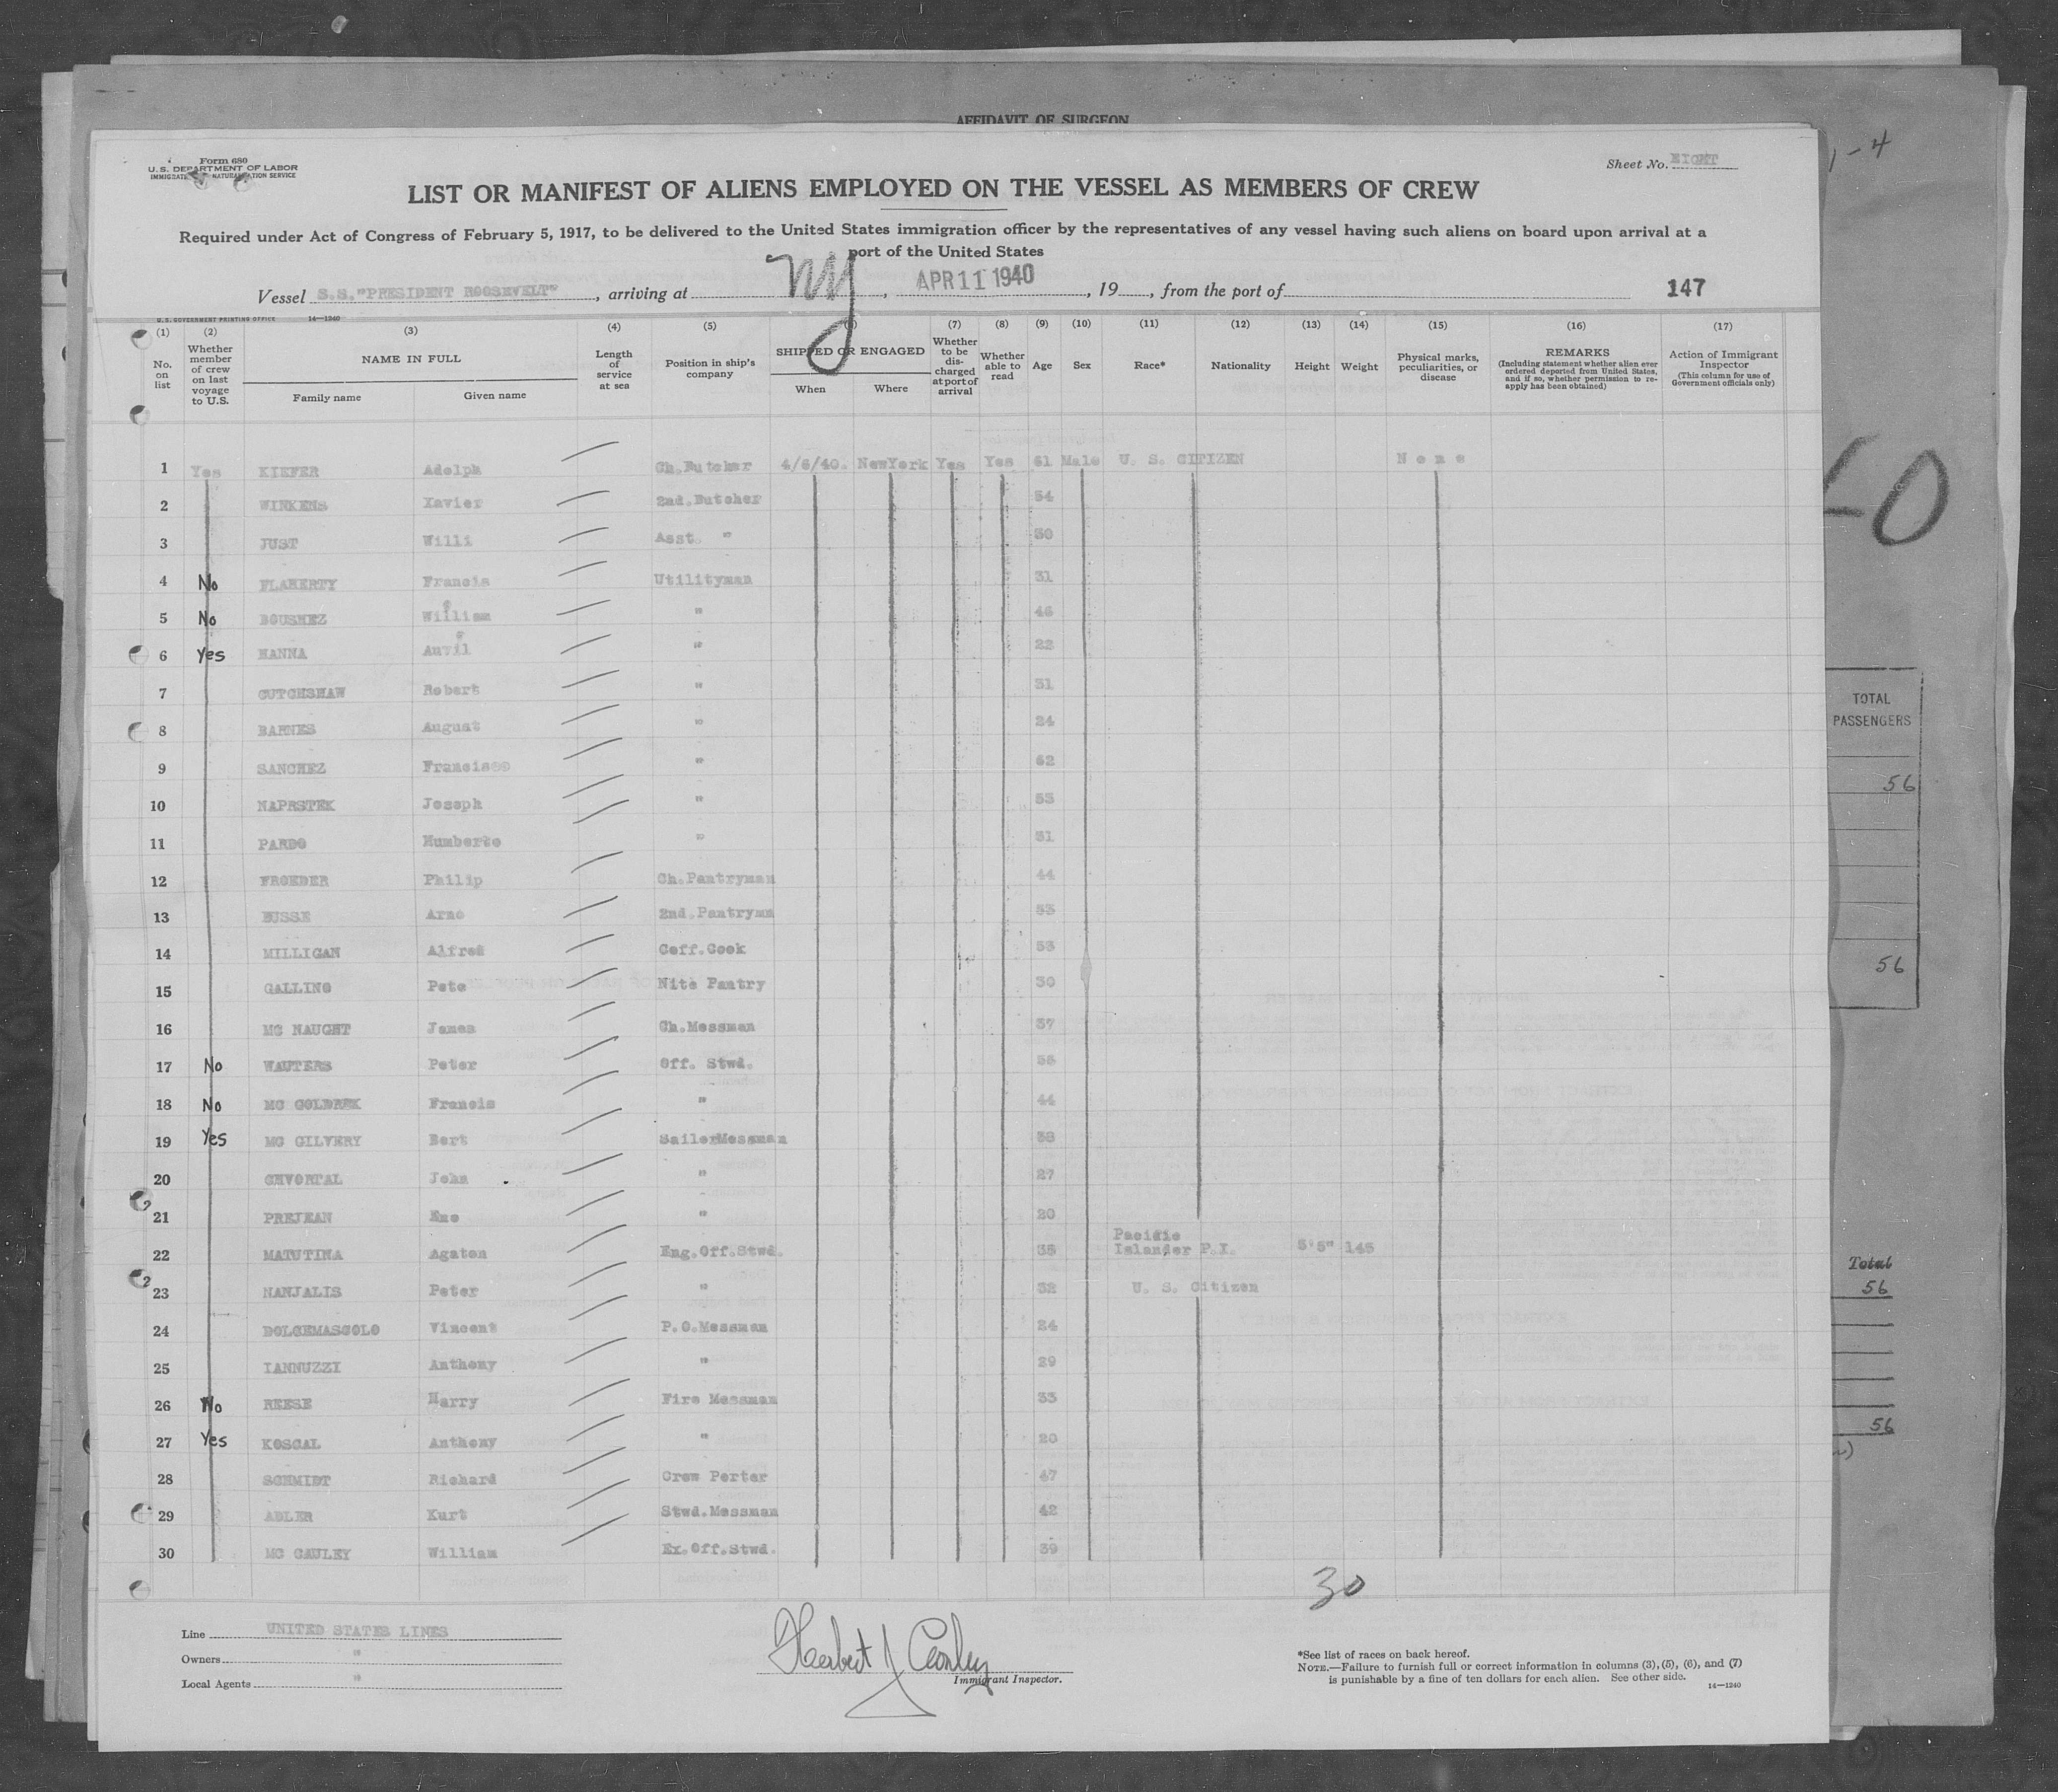 AFFIDAVIT OF SURGEON
Form 680
U. S. DEPARTMENT OF LABOR
Sheet No. EIGHT
LIST OR MANIFEST OF ALIENS EMPLOYED ON THE VESSEL AS MEMBERS OF CREW
Required under Act of Congress of February 5, 1917, to be delivered to the United States immigration officer by the representatives of any vessel having such aliens on board upon arrival at a
port of the United States
Vessel S.S."PRESIDENT ROOSEVELT", arriving at NY, APR 11 1940, 19, from the port of 147
U. S. GOVERNMENT PRINTING OFFICE 14—1240
(1) (2) (3) (4) (5) (7) (8) (9) (10) (11) (12) (13) (14) (15) (16) (17)
No. on list
Whether member of crew on last voyage to U.S.
NAME IN FULL
Family name Given name
Length of service at sea
Position in ship's company
SHIPPED OR ENGAGED
When Where
Whether to be discharged at port of arrival
Whether able to read
Age Sex Race* Nationality Height Weight
Physical marks, peculiarities, or disease
REMARKS
(Including statement whether alien ever ordered deported from United States, and if so, whether permission to re-apply has been obtained)
Action of Immigrant Inspector
(This column for use of Government officials only)
1 Yes KIEFER Adolph Ch.Butcher 4/6/40. NewYork Yes Yes 61 Male U. S. CITIZEN None
2 WINKENS Xavier 2nd.Butcher 54
3 JUST Willi Asst. " 30
4 No FLAHERTY Francis Utilityman 31
5 No William " 46
6 Yes HANNA Anvil " 22
7 CUTCHSHAW Robert " 31
8 BARNES August " 24
9 SANCHEZ Francisco " 62
10 NAPRSTEK Joseph " 55
11 PARDO Humberto " 31
12 FROEDER Philip Ch.Pantryman 44
13 BUSSE Arno 2nd.Pantrymn
14 MILLIGAN Alfred Coff.Cook 53
15 GALLING Pete Nite Pantry 30
16 MC NAUGHT James Ch.Messman 37
17 No WAUTERS Peter Off. Stwd.
18 No Francis " 44
19 Yes MC GILVERY Bert SailorMessman
20 CHVORTAL John " 27
21 PREJEAN " 20
22 MATUTINA Agaton Eng.Off.Stwd. 35 Pacific Islander P.I. 5'5" 145
23 NANJALIS Peter " 32 U. S. Citizen
24 DOLCEMASCOLO Vincent P.O.Messman 24
25 IANNUZZI Anthony " 29
26 No REESE Harry Fire Messman 33
27 Yes KOSCAL Anthony " 20
28 SCHMIDT Richard Crew Porter 47
29 ADLER Kurt Stwd.Messman 42
30 MC CAULEY William Ex.Off.Stwd. 39
30
Line UNITED STATES LINES
Owners "
Local Agents "
Immigrant Inspector.
*See list of races on back hereof.
NOTE.—Failure to furnish full or correct information in columns (3), (5), (6), and (7)
is punishable by a fine of ten dollars for each alien. See other side.
14—1240
TOTAL
PASSENGERS
56
56
Total
56
56